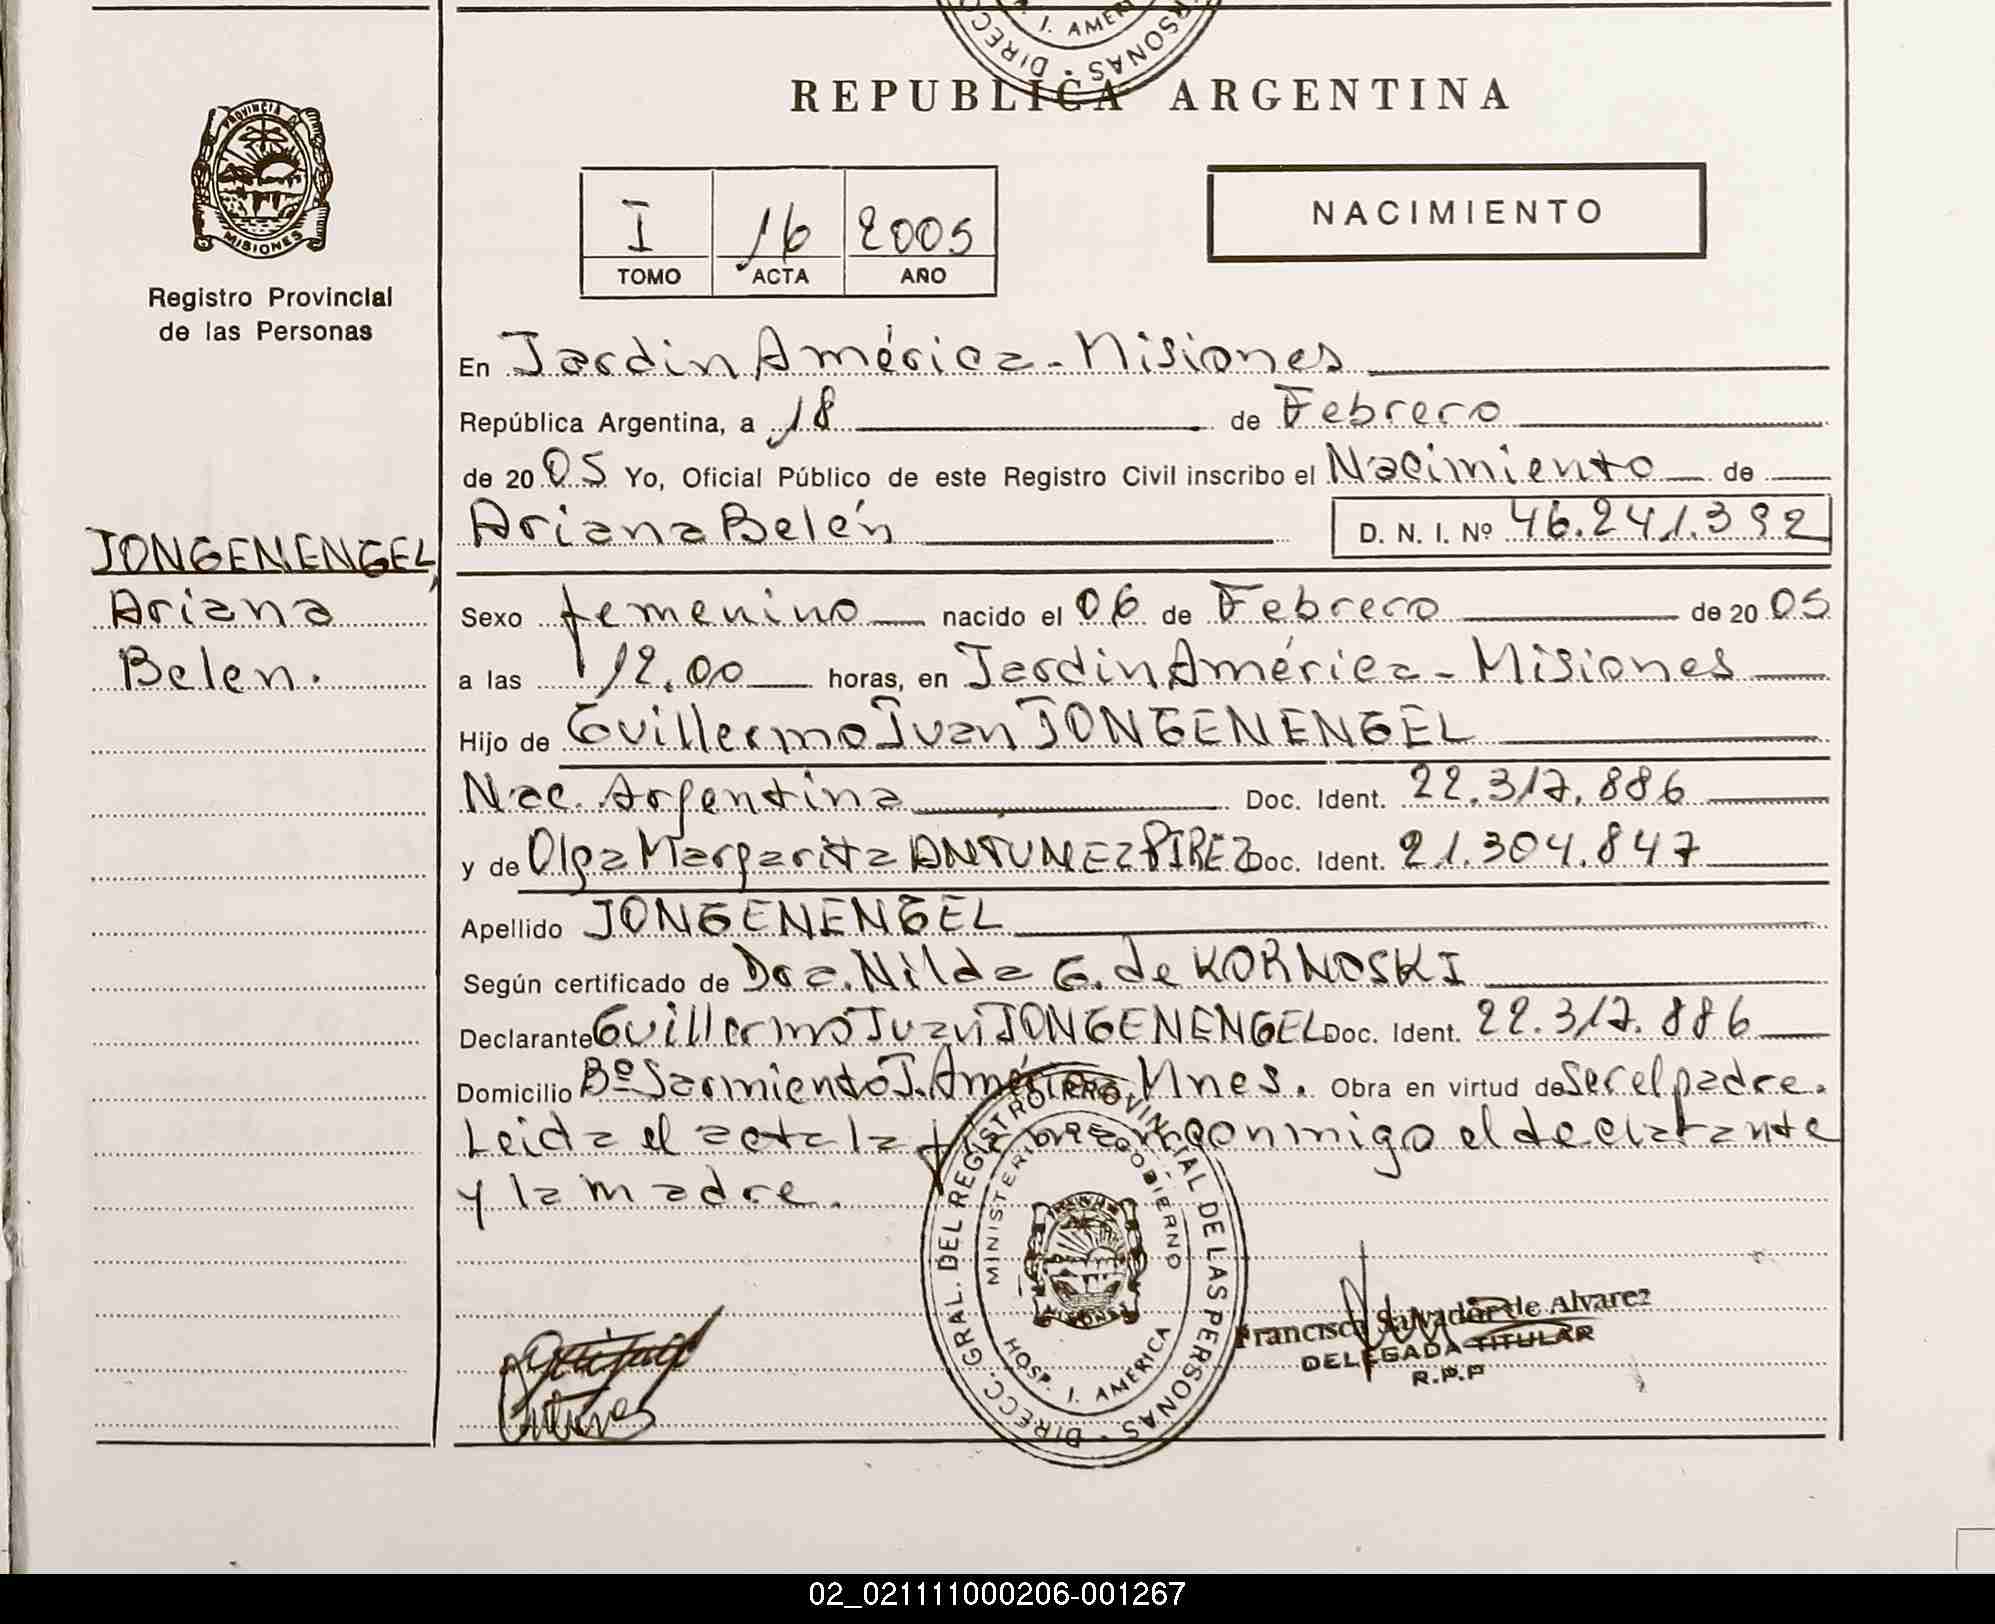 DIRECC
I. AMER
SONAS
REPUBLICA ARGENTINA
PROVINCIA DE
MISIONES
Registro Provincial
de las Personas
I 16 2005
TOMO ACTA AÑO
NACIMIENTO
En Jardin América - Misiones
República Argentina, a 18 de Febrero
de 20 05 Yo, Oficial Público de este Registro Civil inscribo el Nacimiento de
Ariana Belén D. N. I. Nº 46.241.392
JONGENENGEL,
Ariana
Belen.
Sexo femenino nacido el 06 de Febrero de 20 05
a las 12.00 horas, en Jardin América - Misiones
Hijo de Guillermo Juan JONGENENGEL
Nac. Argentina Doc. Ident. 22.317.886
y de Olga Margarita ANTUNEZ PIREZ Doc. Ident. 21.304.847
Apellido JONGENENGEL
Según certificado de Dra. Nilda G. de KORNOSKI
Declarante Guillermo Juan JONGENENGEL Doc. Ident. 22.317.886
Domicilio Bº Sarmiento J. América Mnes. Obra en virtud de Ser el padre.
Leida el acta la firman conmigo el declarante
y la madre.
DIRECC. GRAL. DEL REGISTRO PROVINCIAL DE LAS PERSONAS
MINISTERIO DE GOBIERNO
HOSP. I. AMERICA
Antunes
Francisca Salvador de Alvarez
DELEGADA TITULAR
R.P.P
02_021111000206-001267